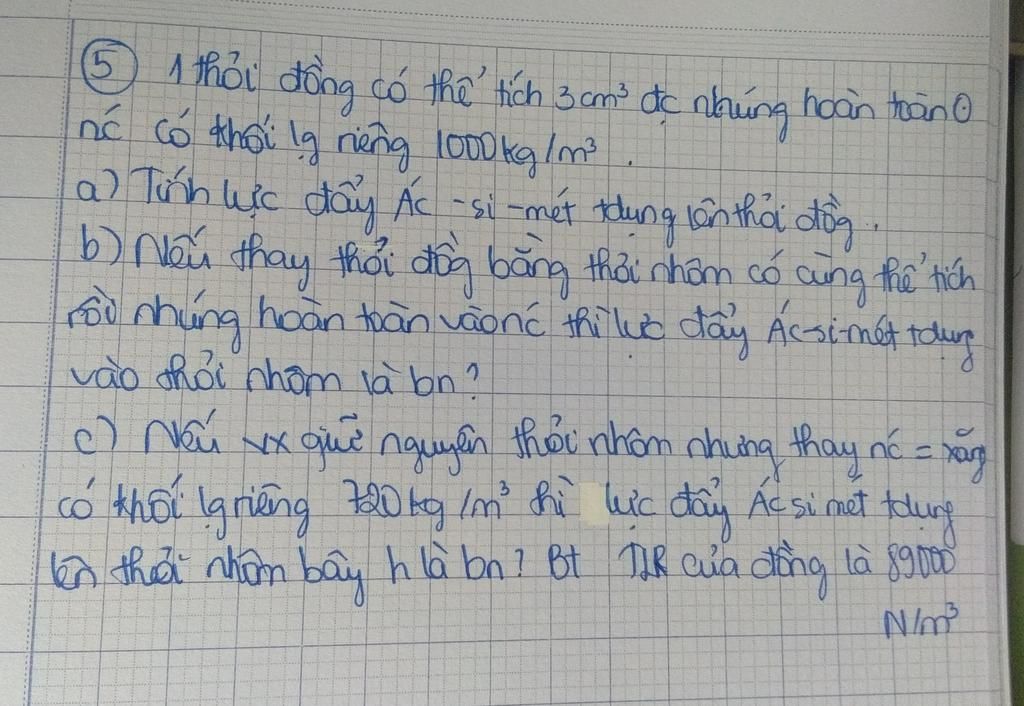 ⑤ 1 thỏi đồng có thể tích 3 cm³ đc nhúng hoàn toàn
nc có khối lg riêng 1000kg/m³.
a) Tính lực đẩy Ác-si-mét tdụng lên thỏi đồg.
b) Nếu thay thỏi đồg bằng thỏi nhôm có cùng thể tích
rồi nhúng hoàn toàn vào nc thì lực đẩy Ác-si-mét tdụng
vào thỏi nhôm là bn?
c) Nếu giữ nguyên thỏi nhôm nhưng thay nc = xăng
có khối lg riêng 720kg/m³ thì lực đẩy Ác si mét tdụng
lên thỏi nhôm bây h là bn? Bt TLR của đồng là 89000
N/m³